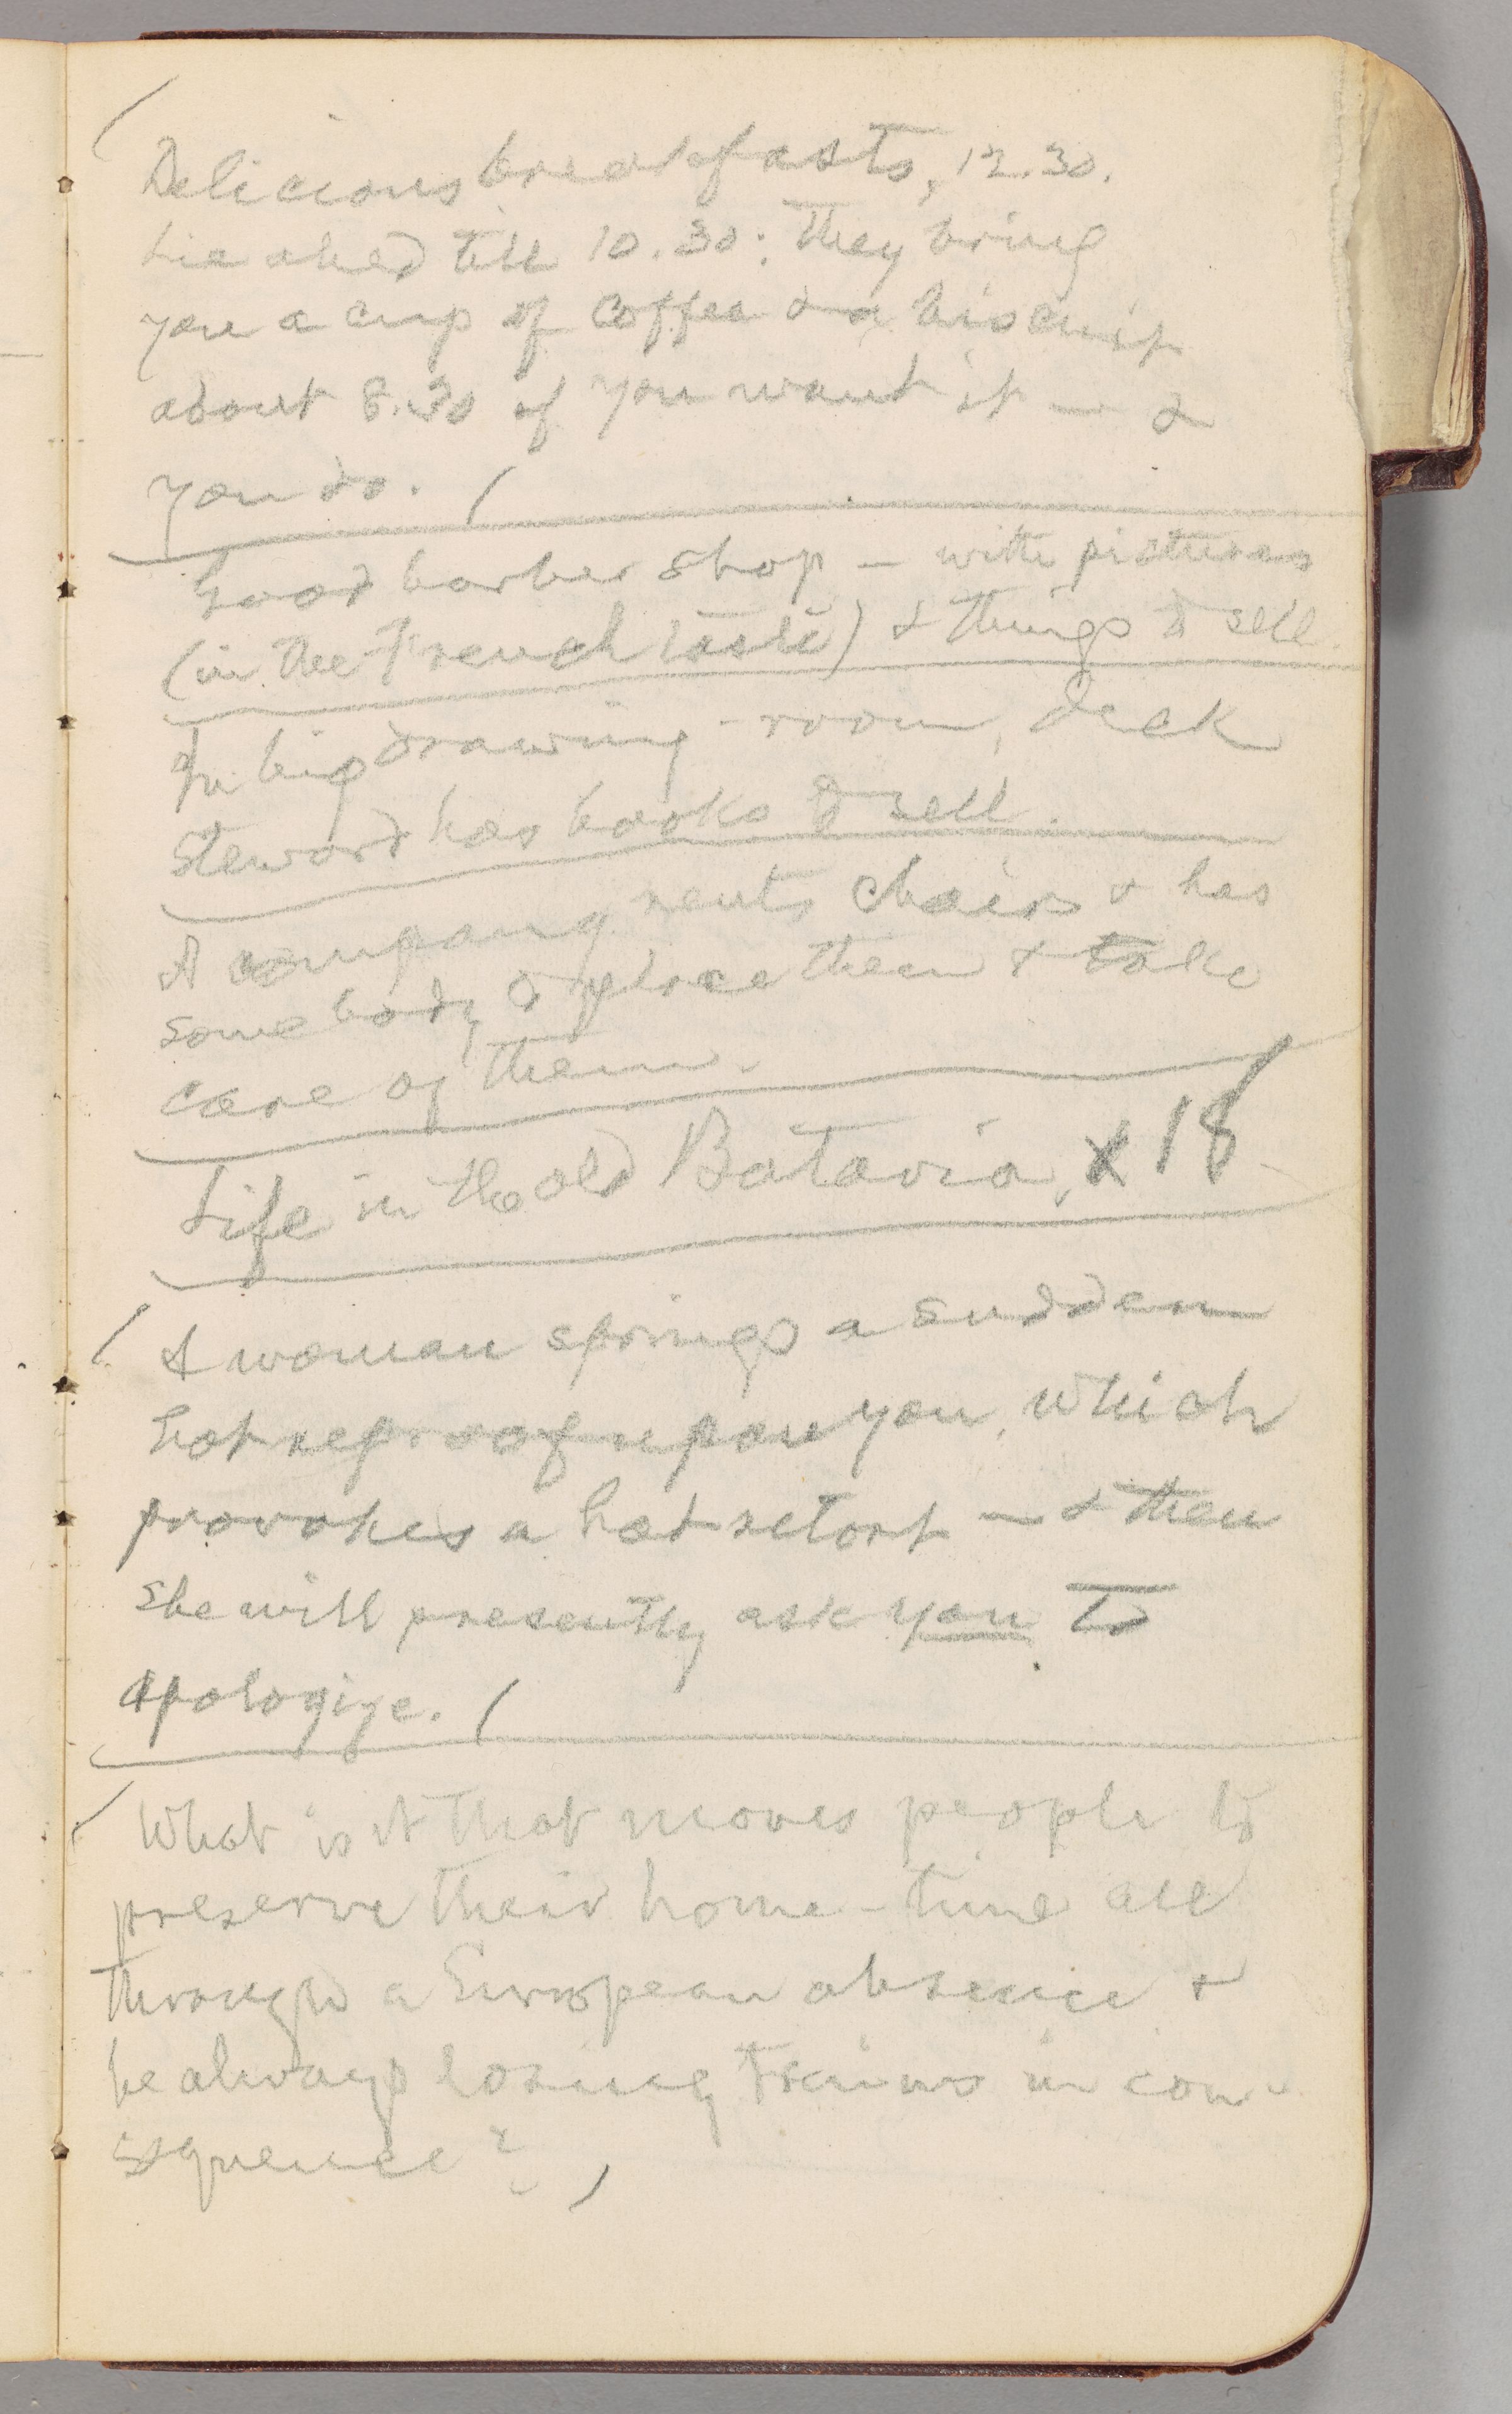 Delicious breakfasts, 12.30.
Lie abed till 10.30; they bring
you a cup of coffee & a biscuit
about 8.30 if you want it — &
you do.
Good barber shop — with pictures
(in the French taste) & things to sell.
In big drawing-room, deck
steward has books to sell.
A company rents chairs & has
somebody to place them & take
care of them.
Life in the old Batavia, x 18
A woman springs a sudden
hot reproof upon you, which
provokes a hot retort — & then
she will presently ask you to
apologize.
What is it that moves people to
preserve their home-time all
through a European absence &
be always losing trains in con-
sequence?